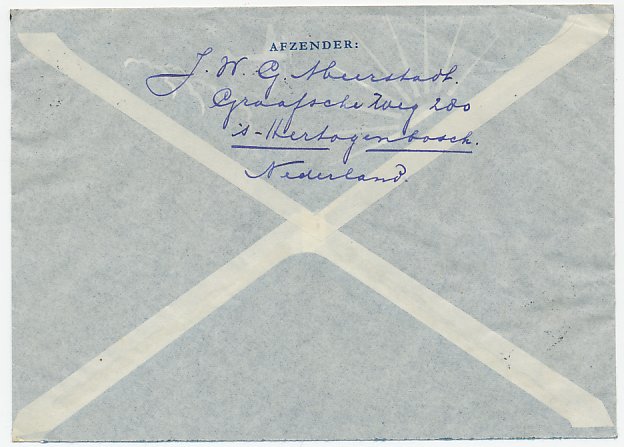 AFZENDER:
J. W. G. Meerstadt.
Graafsche Weg 280
's-Hertogenbosch.
Nederland.